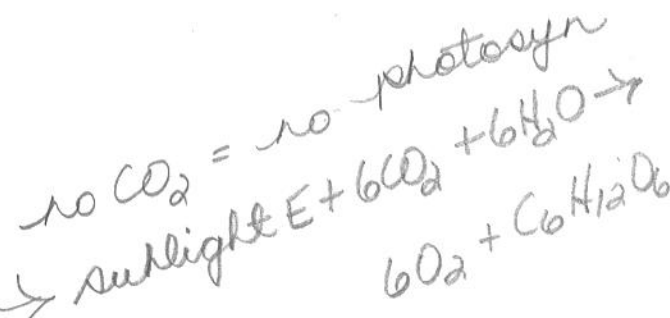 no CO₂ = no photosyn
→ sunlight E + 6CO₂ + 6H₂O →
6O₂ + C₆H₁₂O₆